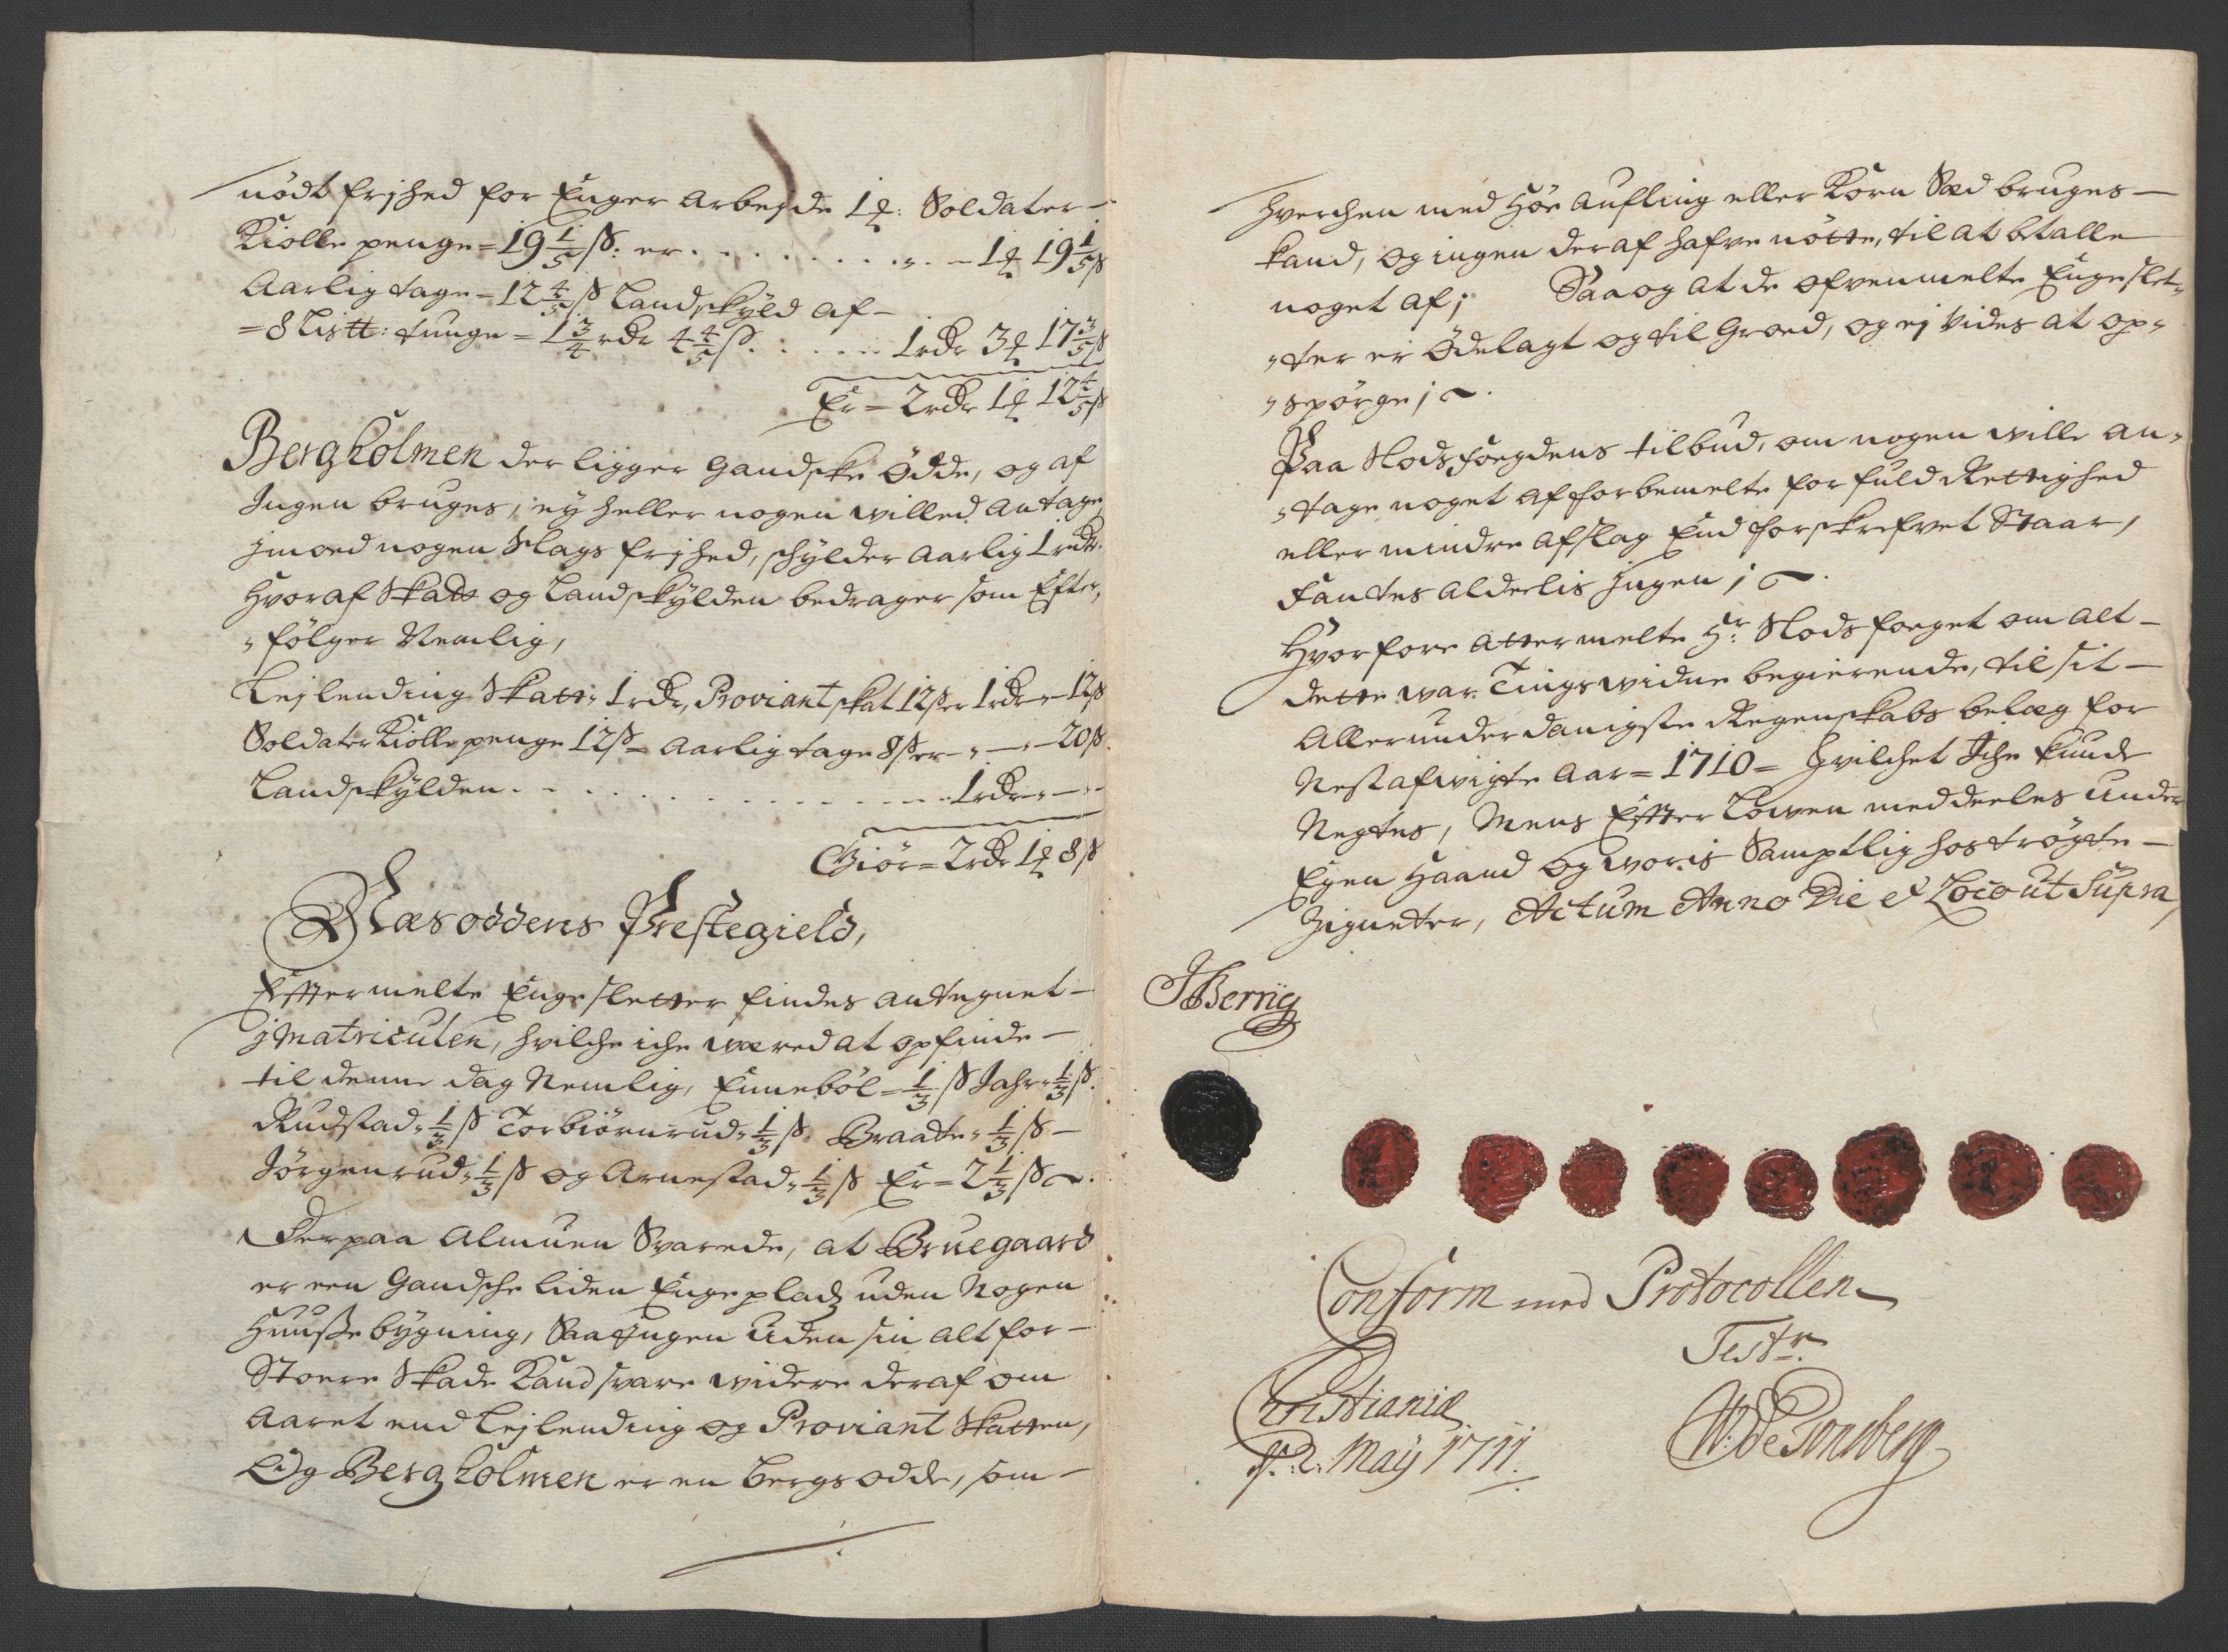 nødt frjhed for Enger Arbejde 1 ℔: Soldater-
Kiolle penge = 19 1/5 ß: er . . . . . . . . - 1 ℔ 19 1/5 ß
Aarlig tage = 12 4/5 ß Landskyld af -
= 8 Lis ℔: tunge = 1 3/4 rdr 4 4/5 ß . . . . . 1 rdr 3 ℔ 17 3/5 ß
Er = 2 rdr 1 ℔ 12 4/5 ß
Bergholmen der ligger Gandske Ødde, og af
Ingen bruges, ey heller nogen willed Antage,
jmoed nogen Slags frjhed, schylder Aarlig 1 rdr.
Hvoraf Skatt og Landskylden bedrager som Efter,
„følger Nemlig,
Lejlending Skatt: 1 rdr, Proviant skat 12 ß er 1 rdr - 12 ß
Soldater Kiolle penge 12 ß - Aarlig tage 8 ß er - „ - - 20 ß.
Landskylden . . . . . . . . . . . . . . 1 rdr - „ -
Giør = 2 rdr 1 ℔ 8 ß
Næsoddens Prestegield,
Efftermelte Enge sletter findes antegnet -
j Matriculen, hvilche iche wæred at opfinde -
til denne dag Nemlig, Ennebøl = 1/3 ß Jahr = 1/3 ß.
Rudstad = 1/3 ß Torbiørnrud = 1/3 ß. Braate = 1/3 ß -
Jørgenrud = 1/3 ß og Arnestad = 1/3 ß Er = 2 1/3 ß
Derpaa Almuen Svarede, at Bruegaard
er een Gandsche liden Enge plads uden Nogen
Huusse bygning, Saa Ingen Uden sin alt for -
Stoere Skade Kand svare widere deraf om
Aaret end Lejlending og Proviant Skatten,
Og Bergholmen er en bergs odde, som -
hverchen med Høe Aufling eller Korn Sæd bruges -
kand, og ingen deraf hafve nötte, til at betalle
noget af; Saa og at de ofvenmelte Enge slet„
„ter er Ødelagt og til Groed, og ej vides at op„
„spørge;
Paa Slods foegdens tilbud, om nogen wille an„
„tage noget af forbemelte for fuld Rettighed
eller mindre afslag End forskrefvet Staar,
Fantes alderlis Jngen;
Hvorfore attermelte Hr: Slods foeget om alt -
dette war Tings widne begierende, til sit -
Allerunderdanigste Regenskabs belæg for
Nest afvigte Aar = 1710 = Hvilchet Iche kunde
Negtes, Mens Effter Lowen meddeeles Under
Egen Haand og woris Samptlig hostrøgte -
Zigneter, Actum Anno Die et Loco ut Supra,
JBerrig
Conform med Protocollen
Test:
Christiania
d. 2. Maÿ 1711.
W: de Tonsberg